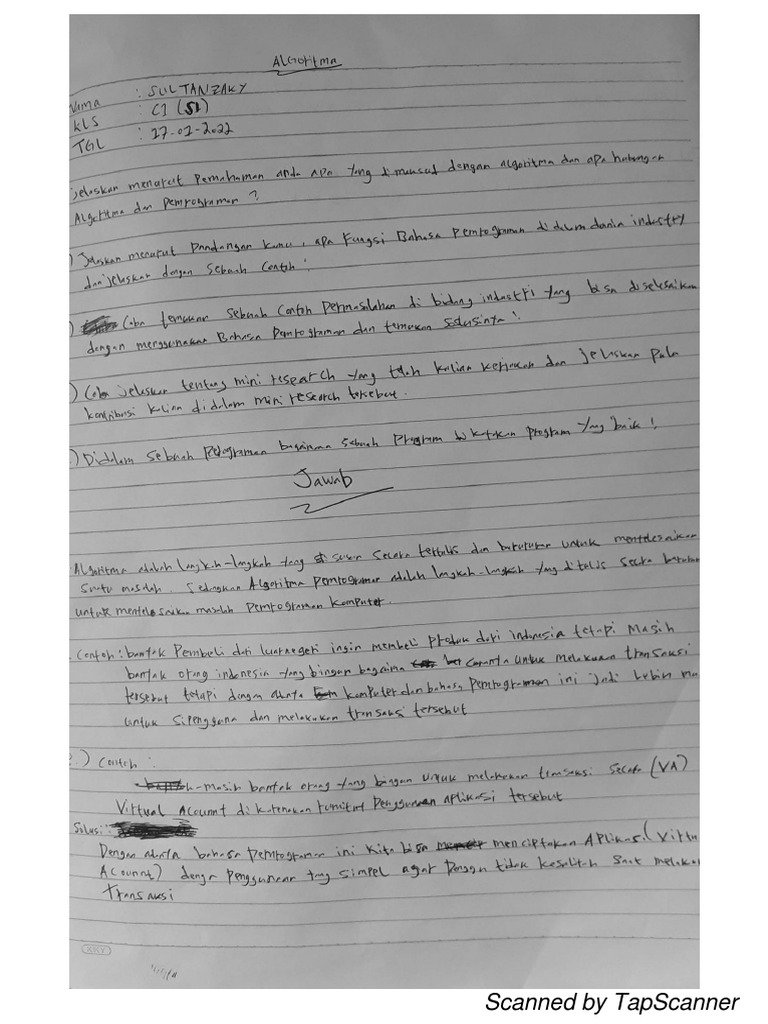 ALGoritma
Nama : SULTANZAKY
KLS : C1 (SI)
TGL : 17-01-2022
jelaskan menurut Pemahaman anda apa yang dimaksud dengan algoritma dan apa hubungan
Algoritma dan Pemrograman ?
) Jelaskan menurut Pandangan kamu, apa Fungsi Bahasa Pemrograman didalam dunia industry
dan jelaskan dengan Sebuah Contoh !
) Coba temukan Sebuah Contoh Permasalahan di bidang industri yang bisa diselesaikan
dengan menggunakan Bahasa Pemrograman dan temukan Solusinya !
) Coba jelaskan tentang mini research yang telah kalian kerjakan dan jelaskan pula
kontribusi kalian didalam mini research tersebut.
.) Didalam Sebuah Pemograman bagaimana Sebuah Program di katakan Program yang baik !
Jawab
Algoritma adalah langkah-langkah yang di susun Secara tertulis dan berurutan untuk menyelesaikan
Suatu masalah. Sedangkan Algoritma Pemrograman adalah langkah-langkah yang ditulis Secara berurutan
untuk menyelesaikan masalah Pemrograman komputer.
Contoh : banyak Pembeli dari luar negeri ingin membeli Produk dari indonesia tetapi Masih
banyak orang indonesia yang bingun bagaima caranya untuk melakukan transaksi
tersebut tetapi dengan adanya komputer dan bahasa Pemrograman ini jadi lebih
untuk Sipengguna dan melakukan transaksi tersebut
2.) Contoh :
-masih banyak orang yang bingun untuk melakukan transaksi Secara (VA)
Virtual Account di karenakan rumitnya Penggunaan aplikasi tersebut
Solusi :
Dengan adanya bahasa Pemrograman ini kita bisa menciptakan APlikasi (Virtu
Account) dengan Penggunaan yang simpel agar Pengguna tidak kesulitan Saat melakukan
Transaksi
Scanned by TapScanner